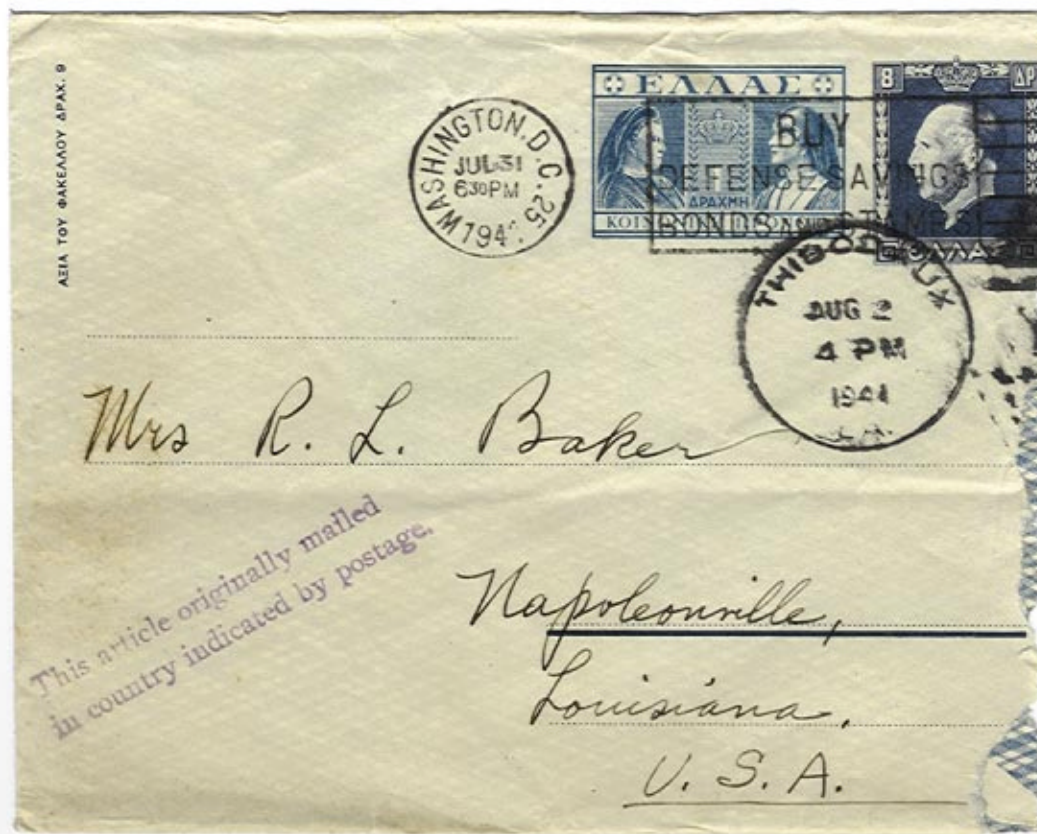 ΑΞΙΑ ΤΟΥ ΦΑΚΕΛΛΟΥ ΔΡΑΧ. 9
WASHINGTON, D.C. 25
JUL 31
6 30 PM
194
ΕΛΛΑΣ
1
ΔΡΑΧΜΗ
8 ΔΡ
ΕΛΛΑΣ
BUY
DEFENSE SAVINGS
BONDS AND STAMPS
THIBODAUX
AUG 2
4 PM
1941
LA.
Mrs R. L. Baker
This article originally mailed
in country indicated by postage.
Napoleonville,
Louisiana,
U. S. A.